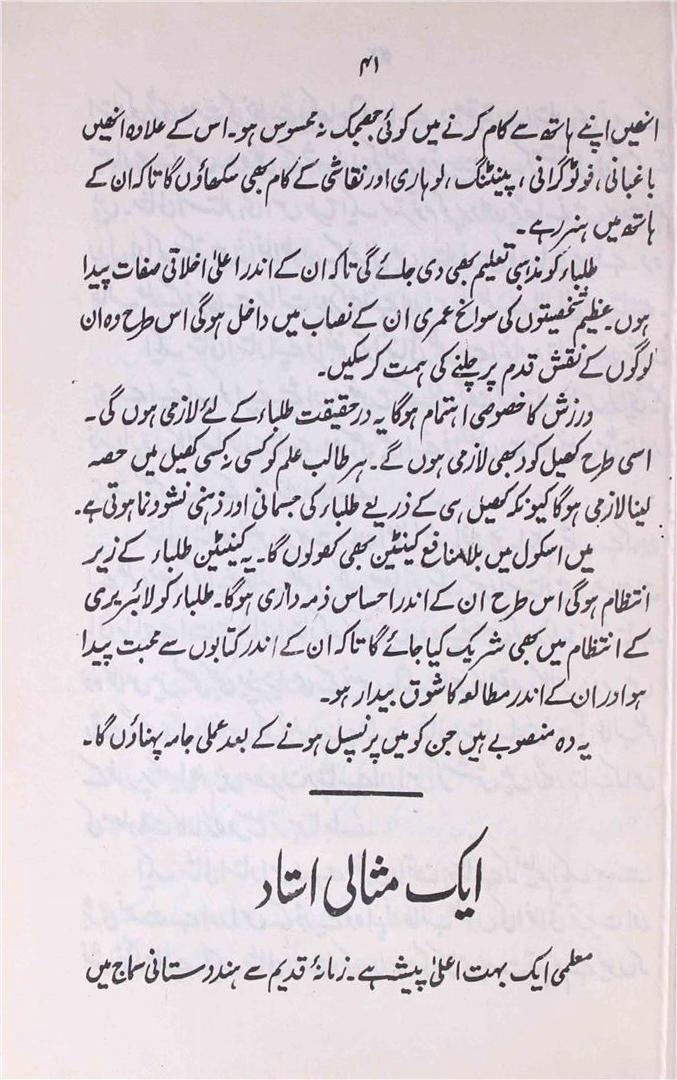 ۴۱
انھیں اپنے ہاتھ سے کام کرنے میں کوئی جھجک نہ محسوس ہو۔ اس کے علاوہ انھیں
باغبانی، فوٹوگرافی، پینٹنگ، لوہاری اور نقاشی کے کام بھی سکھاؤں گا تاکہ ان کے
ہاتھ میں ہنر رہے۔
طلباء کو مذہبی تعلیم بھی دی جائے گی تاکہ ان کے اندر اعلیٰ اخلاقی صفات پیدا
ہوں۔ عظیم شخصیتوں کی سوانح عمری ان کے نصاب میں داخل ہوگی اس طرح وہ ان
لوگوں کے نقش قدم پر چلنے کی ہمت کرسکیں۔
ورزش کا خصوصی اہتمام ہوگا یہ درحقیقت طلباء کے لئے لازمی ہوں گی۔
اسی طرح کھیل کود بھی لازمی ہوں گے۔ ہر طالب علم کو کسی نہ کسی کھیل میں حصہ
لینا لازمی ہوگا کیونکہ کھیل ہی کے ذریعے طلباء کی جسمانی اور ذہنی نشوونما ہوتی ہے۔
میں اسکول میں بلا منافع کینٹین بھی کھولوں گا۔ یہ کینٹین طلباء کے زیر
انتظام ہوگی اس طرح ان کے اندر احساس ذمہ داری ہوگا۔ طلباء کو لائبریری
کے انتظام میں بھی شریک کیا جائے گا تاکہ ان کے اندر کتابوں سے محبت پیدا
ہو اور ان کے اندر مطالعہ کا شوق بیدار ہو۔
یہ وہ منصوبے ہیں جن کو میں پرنسپل ہونے کے بعد عملی جامہ پہناؤں گا۔
ایک مثالی استاد
معلمی ایک بہت اعلیٰ پیشہ ہے۔ زمانۂ قدیم سے ہندوستانی سماج میں